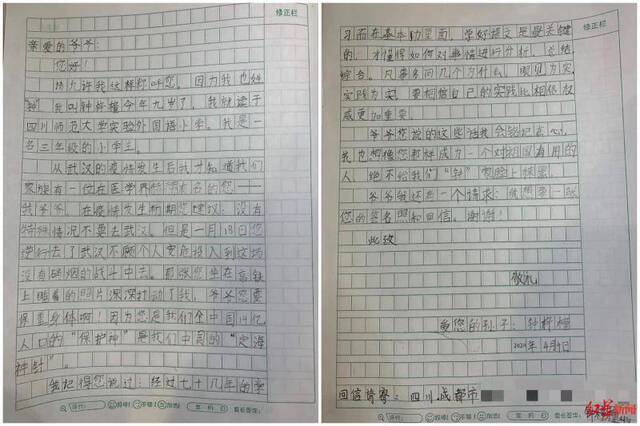 修正栏
亲爱的爷爷:
您好!
请允许我这样称呼您。因为我也姓
"钟",我叫钟梓
今年九岁了。我就读于
四川师范大学实验外国语小学。我是一
名三年级的小学生。
从武汉的疫情发生后我才知道我们
家族有一位在医学界特别有名的您——
我爷爷。在疫情发生初期您建议:没有
特殊情况不要去武汉。但是一月18日您
逆行去了武汉不顾个人安危投入到这场
没有硝烟的战斗中去。那张您坐在高铁
上睡着的照片深深打动了我。爷爷您要
保重身体啊!因为您是我们全中国14亿
人口的"保护神"是我们中国的"定海
神针"。
我记得您说过:经过七十几年的学
修正栏
习而在基本功里面,学好语文是最关键
的,才懂得如何对事情进行分析、总结、
综合。凡事多问几个为什么,眼见为实、
实践为实。要相信自己的实践比相信权
威更加重要。
爷爷您说的这些话我会铭记在心,
我也想像您那样成为一个对祖国有用的
人,绝不给我们"钟"家脸上抹黑。
爷爷我还有一个请求:就想要一张
您的签名照和回信。谢谢!
此致
敬礼
爱您的孙子:钟梓
年4月
日
回信请寄:四川成都市
红星新闻